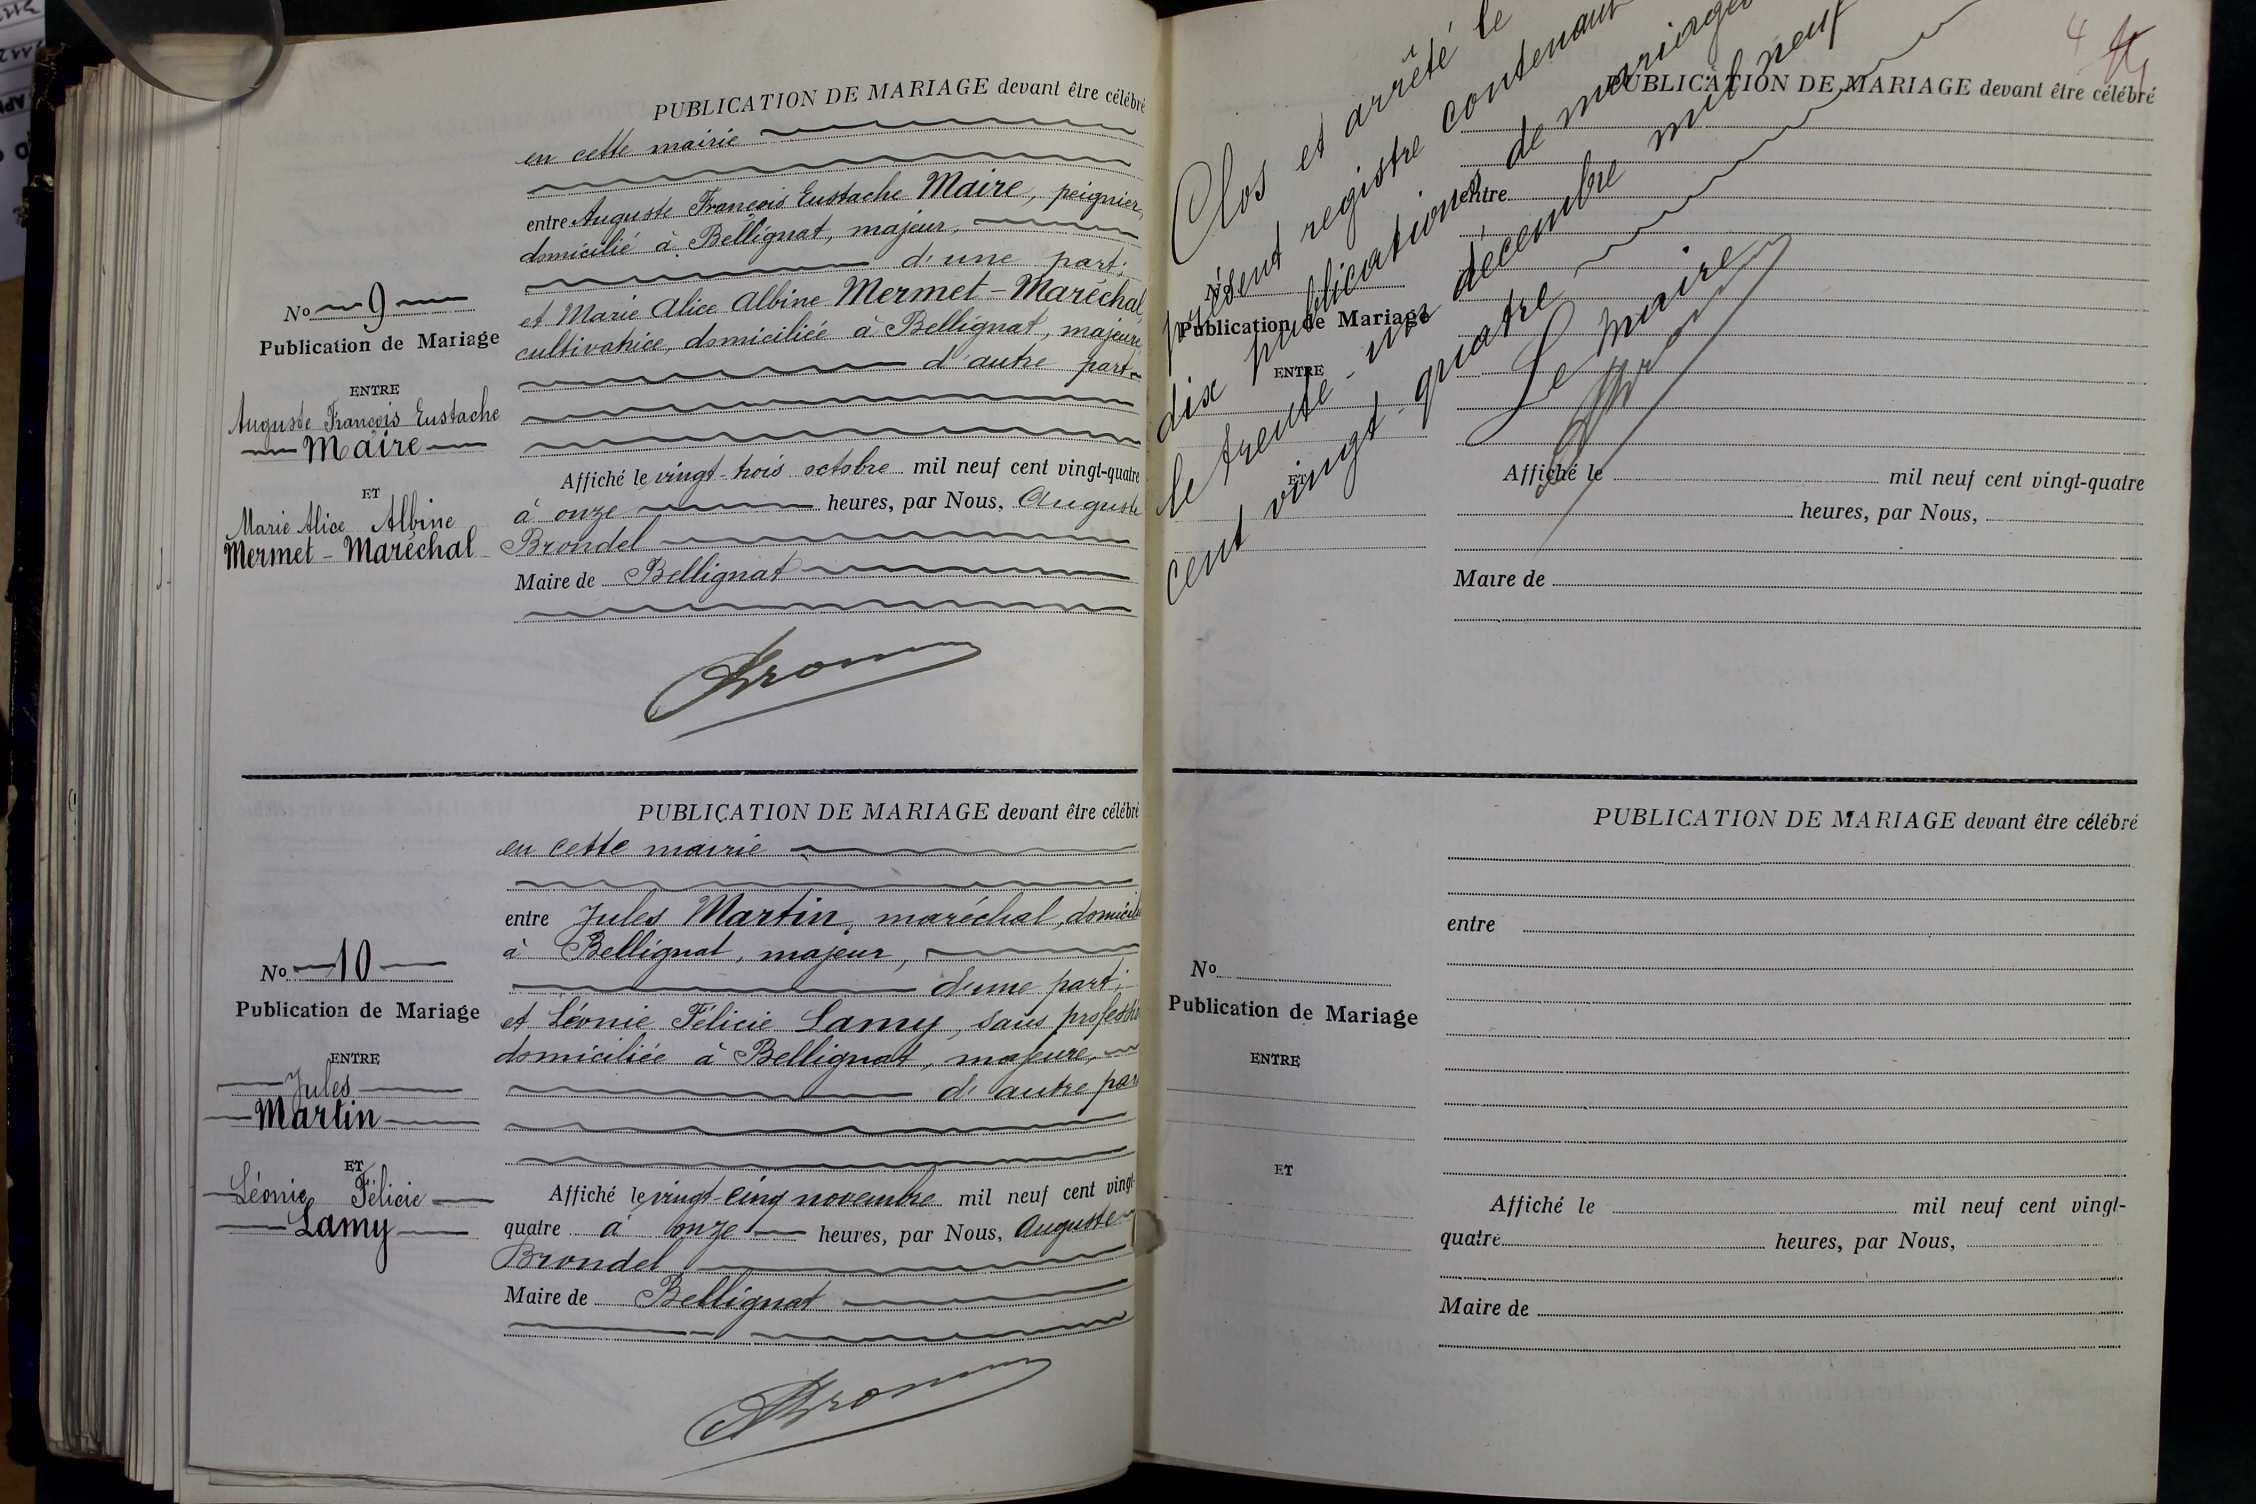 PUBLICATION DE MARIAGE devant être célébré
en cette mairie
entre Auguste François Eustache Maire, peignier,
domicilié à Bellignat, majeur,
d'une part;
et Marie Alice Albine Mermet-Maréchal,
cultivatrice, domiciliée à Bellignat, majeure,
d'autre part
Affiché le vingt-trois octobre mil neuf cent vingt-quatre
à onze heures, par Nous, Auguste
Brondel
Maire de Bellignat
No 9
Publication de Mariage
ENTRE
Auguste François Eustache
Maire
ET
Marie Alice Albine
Mermet-Maréchal
PUBLICATION DE MARIAGE devant être célébré
en cette mairie
entre Jules Martin, maréchal, domicilié
à Bellignat, majeur,
d'une part;
et Léonie Félicie Lamy, sans professi
domiciliée à Bellignat, majeure,
d'autre par
Affiché le vingt-cinq novembre mil neuf cent vingt-
quatre à onze heures, par Nous, Auguste
Brondel
Maire de Bellignat
No 10
Publication de Mariage
ENTRE
Jules
Martin
ET
Léonie Félicie
Lamy
4
PUBLICATION DE MARIAGE devant être célébré
entre
No
Publication de Mariage
ENTRE
ET
Affiché le mil neuf cent vingt-quatre
heures, par Nous,
Maire de
Clos et arrêté le
présent registre contenant
dix publications de mariage
le trente-un décembre mil neuf
cent vingt-quatre
Le Maire
PUBLICATION DE MARIAGE devant être célébré
entre
No
Publication de Mariage
ENTRE
ET
Affiché le mil neuf cent vingt-
quatre heures, par Nous,
Maire de